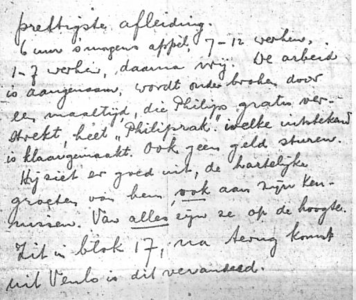 prettigste afleiding.
6 uur 's morgens appèl. 7-12 werken,
1-7 werken, daarna vrij. De arbeid
is aangenaam, wordt onderbroken door
een maaltijd, die Philips gratis ver-
strekt, heet "Philiprak" welke uitstekend
is klaargemaakt. Ook geen geld sturen.
Hij ziet er goed uit, de hartelijke
groeten van hem, ook aan zijn ken-
nissen. Van alles zijn ze op de hoogte.
Zit in blok 17, na terug komst
uit Venlo is dit veranderd.